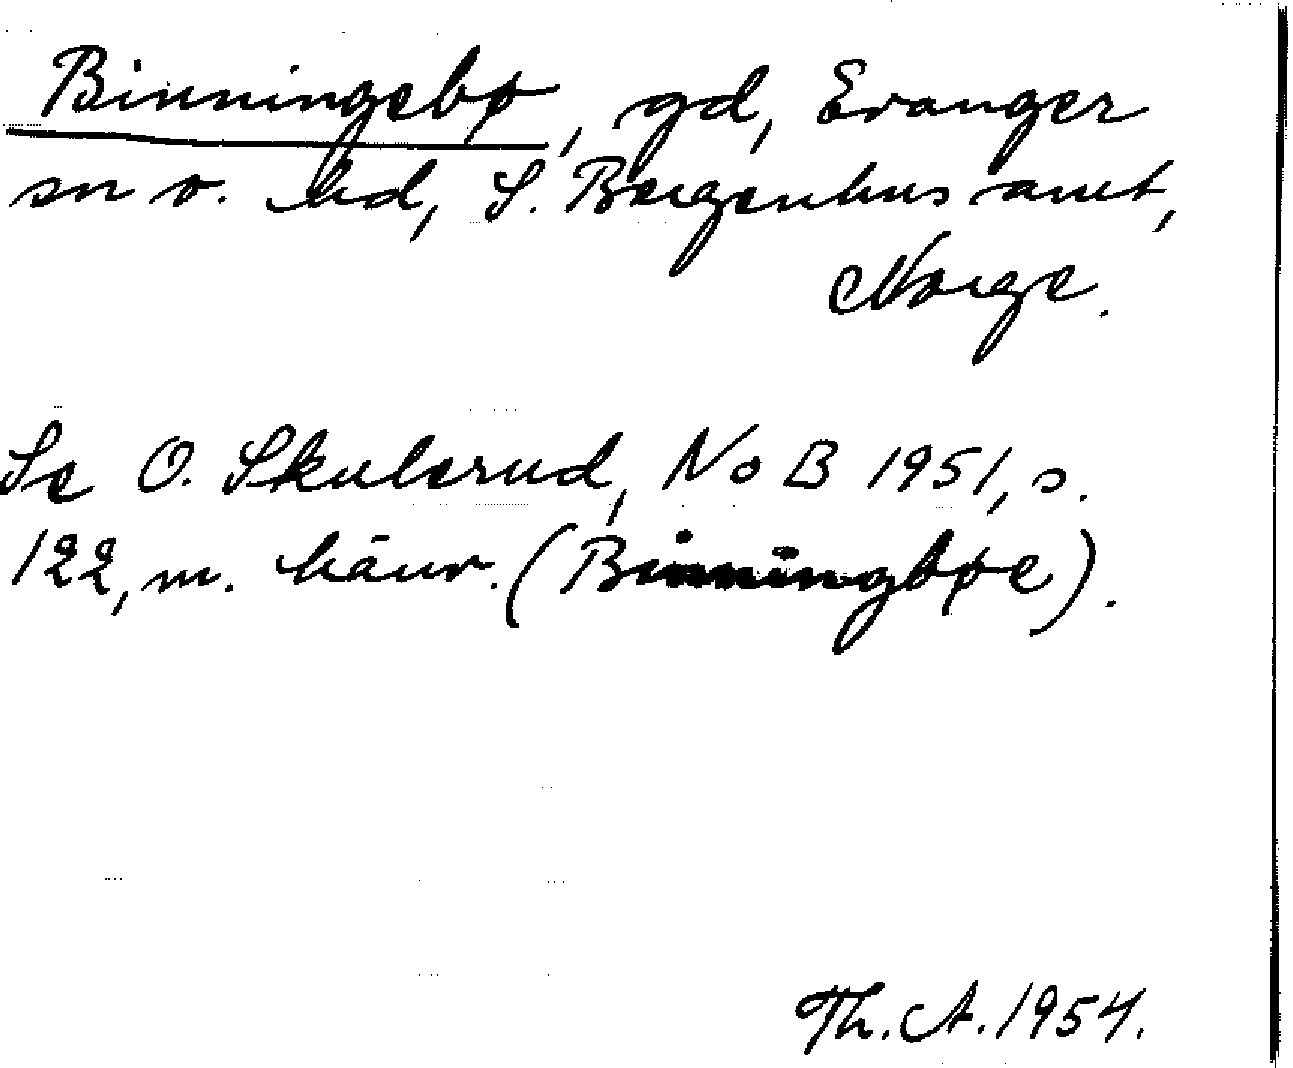 Binningebø, gd, Evanger
sn o. hd, S. Bergenhus amt,
Norge.
Se O. Skulerud, NoB 1951, s.
122, m. hänv. (Binningbøe).
Th. A. 1954.